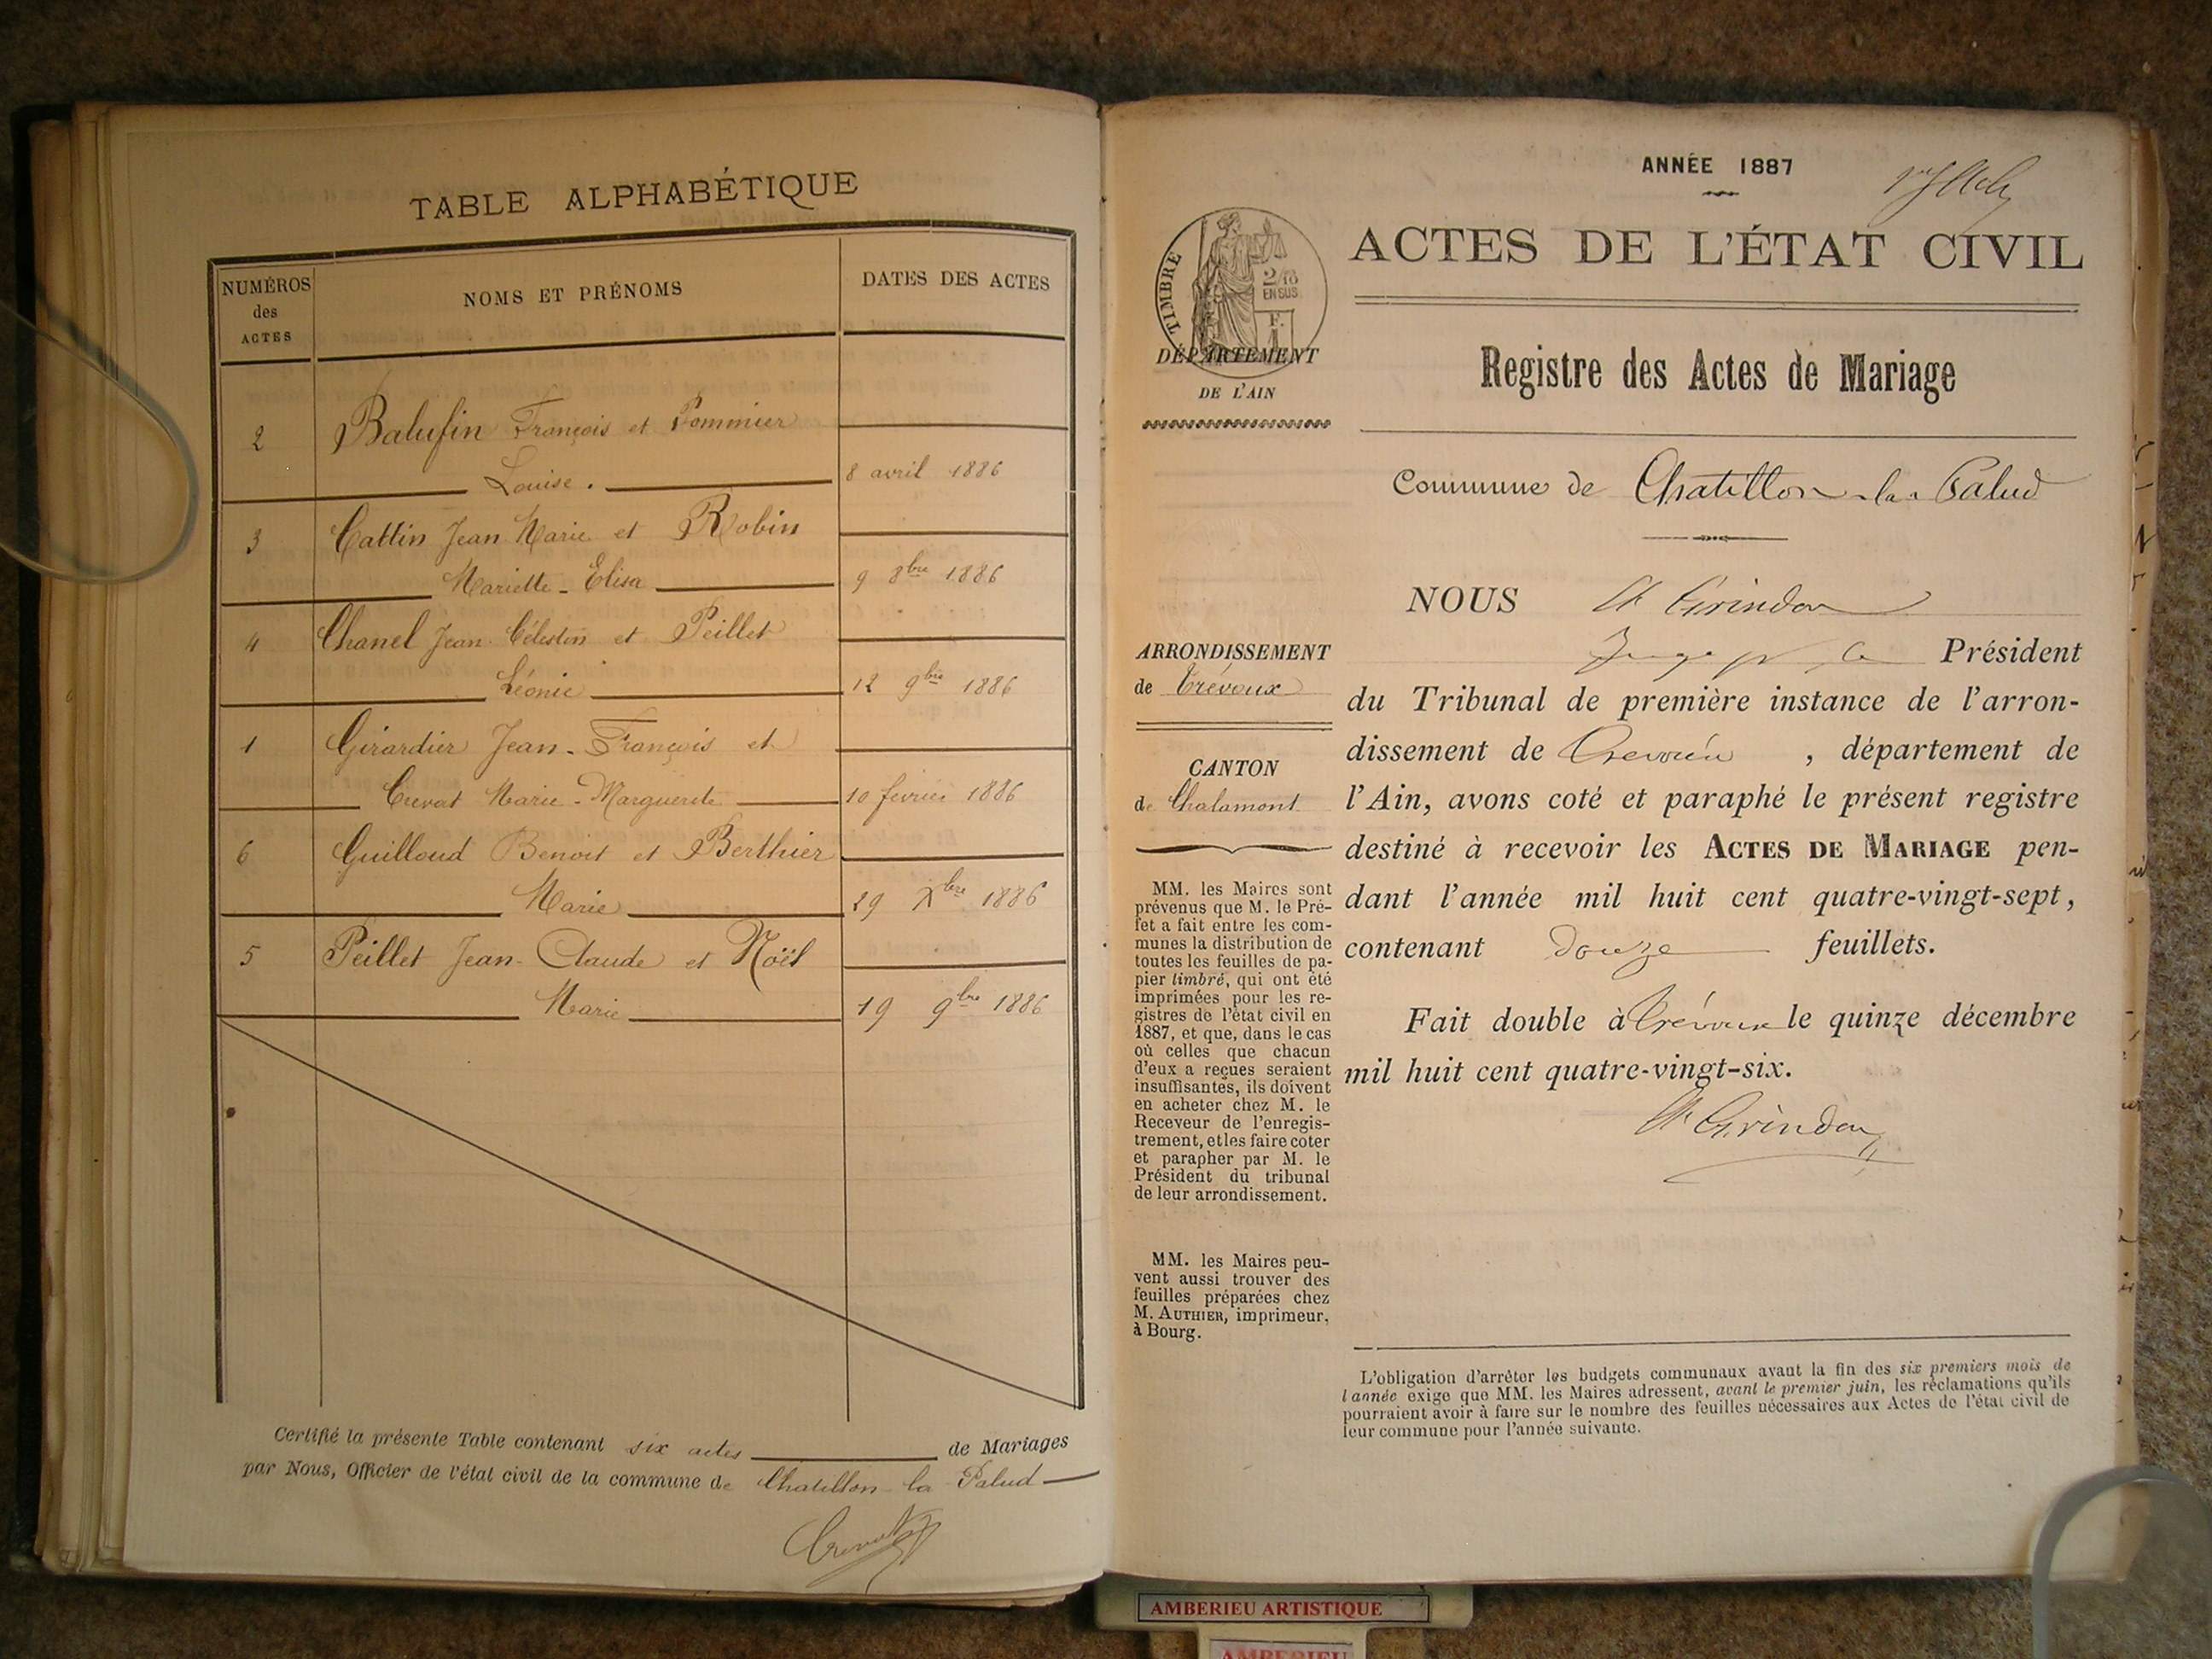 TABLE ALPHABÉTIQUE
NUMÉROS des ACTES
NOMS ET PRÉNOMS
DATES DES ACTES
2 Balufin François et Pommier
Louise. 8 avril 1886
3 Cattin Jean Marie et Robin
Mariette - Elisa 9 8bre 1886
4 Chanel Jean Célestin et Peillet
Léonie 12 9bre 1886
1 Girardier Jean-François et
Crevat Marie-Marguerite 10 février 1886
6 Guilloud Benoit et Berthier
Marie 29 Xbre 1886
5 Peillet Jean-Claude et Noël
Marie 19 9bre 1886
Certifié la présente Table contenant six actes de Mariages
par Nous, Officier de l'état civil de la commune de Chatillon la Palud
Crevat
ANNÉE 1887
ACTES DE L'ÉTAT CIVIL
TIMBRE
2/10
EN SUS
DÉPARTEMENT
DE L'AIN
Registre des Actes de Mariage
Commune de Chatillon-la-Palud
ARRONDISSEMENT
de Trévoux
CANTON
de Chalamont
MM. les Maires sont
prévenus que M. le Pré-
fet a fait entre les com-
munes la distribution de
toutes les feuilles de pa-
pier timbré, qui ont été
imprimées pour les re-
gistres de l'état civil en
1887, et que, dans le cas
où celles que chacun
d'eux a reçues seraient
insuffisantes, ils doivent
en acheter chez M. le
Receveur de l'enregis-
trement, et les faire coter
et parapher par M. le
Président du tribunal
de leur arrondissement.
MM. les Maires peu-
vent aussi trouver des
feuilles préparées chez
M. AUTHIER, imprimeur,
à Bourg.
NOUS Grindon
Juge Président
du Tribunal de première instance de l'arron-
dissement de Trévoux, département de
l'Ain, avons coté et paraphé le présent registre
destiné à recevoir les ACTES DE MARIAGE pen-
dant l'année mil huit cent quatre-vingt-sept,
contenant douze feuillets.
Fait double à Trévoux le quinze décembre
mil huit cent quatre-vingt-six.
Grindon
L'obligation d'arrêter les budgets communaux avant la fin des six premiers mois de
l'année exige que MM. les Maires adressent, avant le premier juin, les réclamations qu'ils
pourraient avoir à faire sur le nombre des feuilles nécessaires aux Actes de l'état civil de
leur commune pour l'année suivante.
AMBERIEU ARTISTIQUE
AMBERIEU